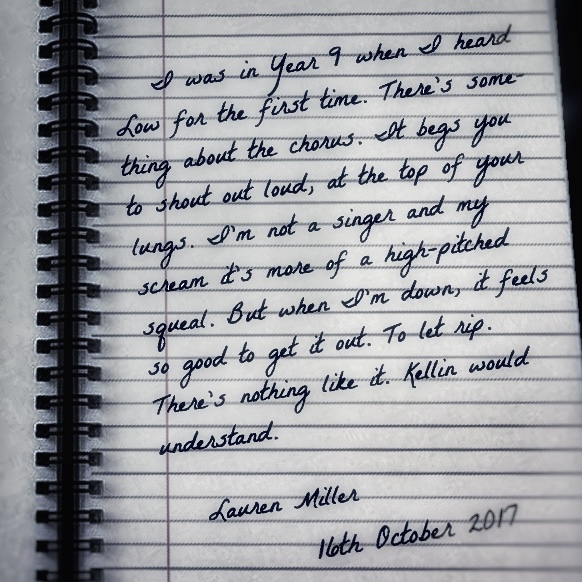 I was in Year 9 when I heard
Low for the first time. There's some-
thing about the chorus. It begs you
to shout out loud, at the top of your
lungs. I'm not a singer and my
scream it's more of a high-pitched
squeal. But when I'm down, it feels
so good to get it out. To let rip.
There's nothing like it. Kellin would
understand.
Lauren Miller
16th October 2017